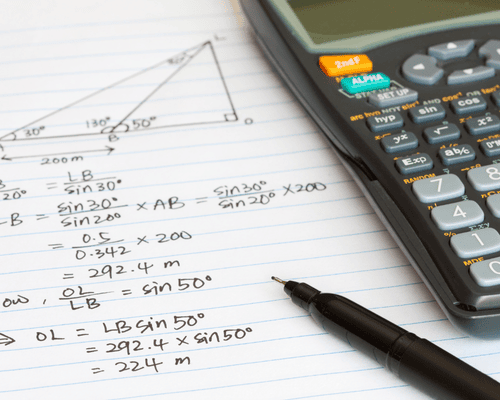 L
30° 130° 50° O
B
200m
20° = LB/sin 30°
B = sin 30°/sin 20° × AB = sin 30°/sin 20° × 200
= 0.5/0.342 × 200
= 292.4 m
ow, OL/LB = sin 50°
⇒ OL = LB sin 50°
= 292.4 × sin 50°
= 224 m
2ndF
ALPHA
SET UP
hyp sin cos
yx √
Exp ab/c
RANDOM
7 8
4
1
0